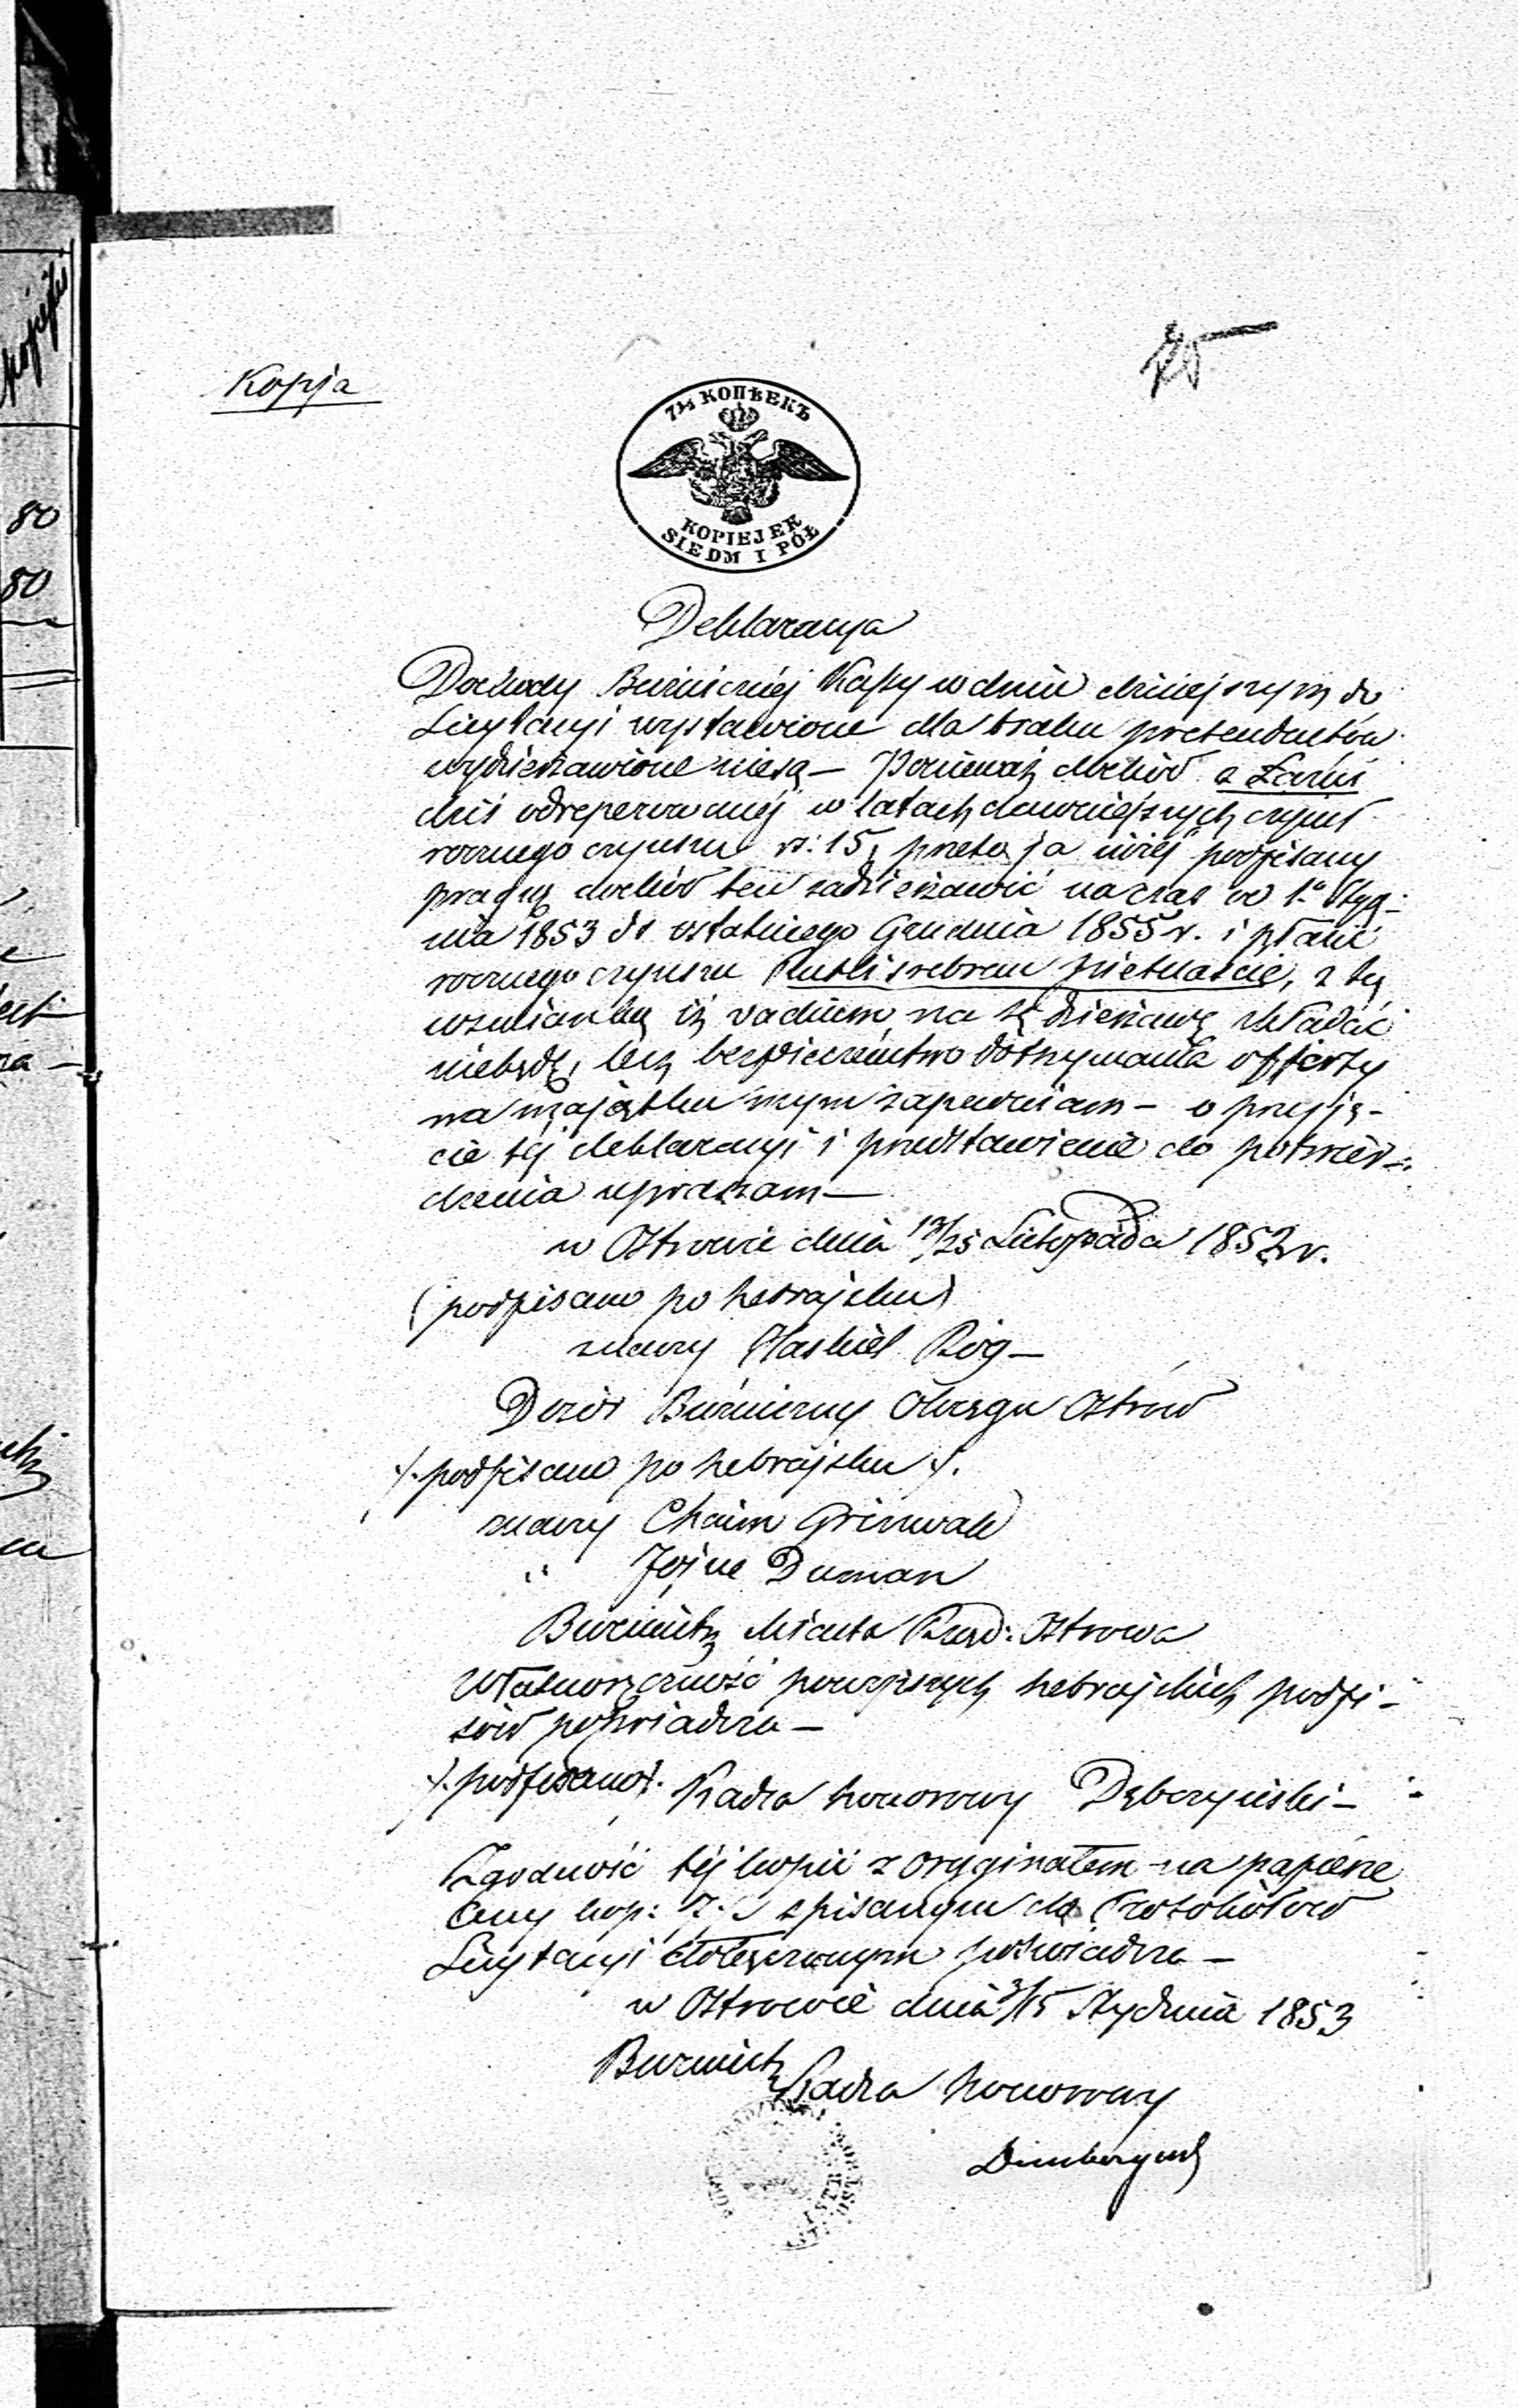 Kopja
25
7½ КОПѢЕКЪ
KOPIEJEK
SIEDM I PÓŁ
Deklaracya
Dochody Bużniczéj Kassy w dniu dzisiejszym do
Licytacyi wystawione dla braku pretendentów
wydzierżawione niesą — Ponieważ dochód z Łaźni
dziś odreperowanéj w latach dawniejszych czynił
rocznego czynszu rs: 15, przeto ja niżéj podpisany
pragnę dochód ten zadzierżawić na czas od 1º Stycz-
nia 1853 do ostatniego Grudnia 1855 r. i płacić
rocznego czynszu Rubli srebrem pietnaście, z tą
wzmianką iż vadium na tę dzierżawę składać
niebędę, lecz bezpieczeństwo dotrzymania offerty
na majątku mym zapewniam — o przyję-
cie téj deklaracyi i przedstawienie do potwier-
dzenia upraszam —
w Ostrowie dnia 13/25 Listopada 1852 r.
(podpisano po hebrajsku)
znaczy Haskiel Róg —
Dozór Bużniczny Okręgu Ostrów
/. podpisano po hebrajsku /.
znaczy Chaim Grinwald
" Jojne Duman
Burmistrz Miasta Rząd: Ostrowa
Własnoręczność powyższych hebrajskich podpi-
sów poświadcza —
/. podpisano /. Radca honorowy Dębczyński —
Zgodność téj kopii z oryginałem na papierze
Ceny kop: 7½ spisanym do Protokółów
Licytacyi dołączonym poświadcza —
w Ostrowie dnia 3/15 Stycznia 1853
Burmistrz
Radca honorowy